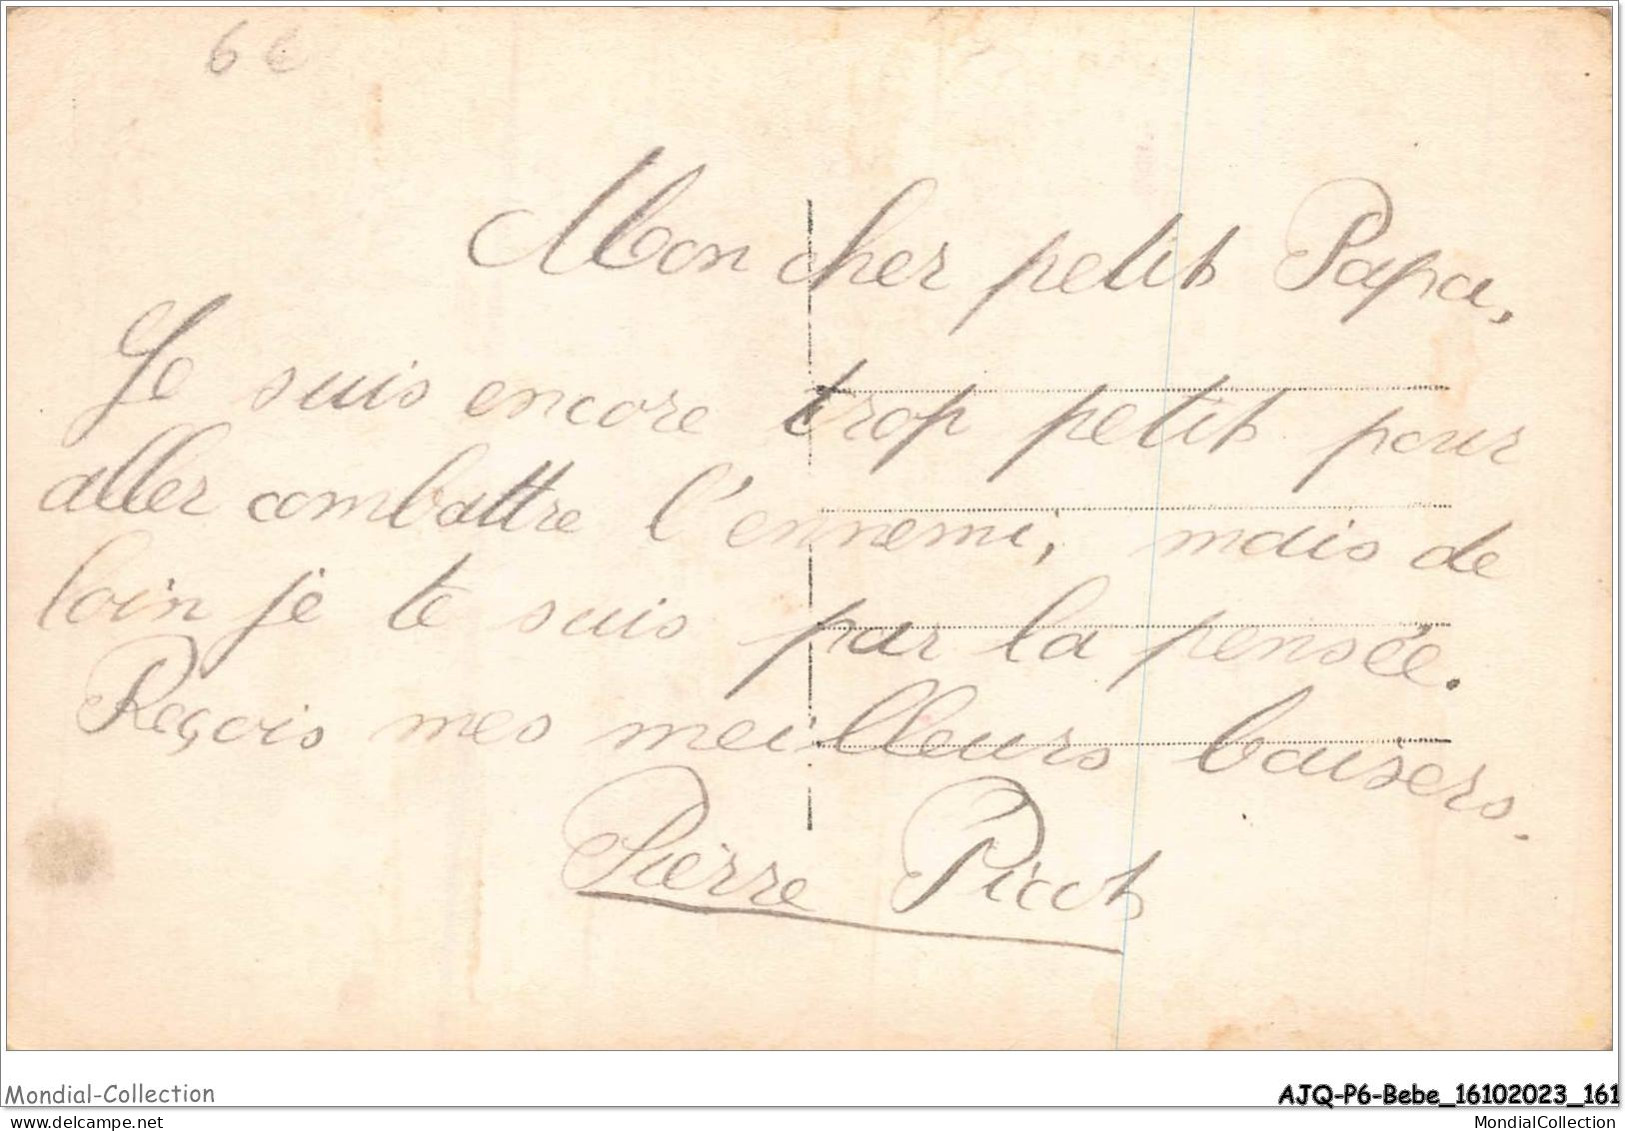 6 €
Mon cher petit Papa,
Je suis encore trop petit pour
aller combattre l'ennemi, mais de
loin je te suis par la pensée.
Reçois mes meilleurs baisers.
Pierre Picot
Mondial-Collection
AJQ-P6-Bebe_16102023_161
www.delcampe.net
MondialCollection